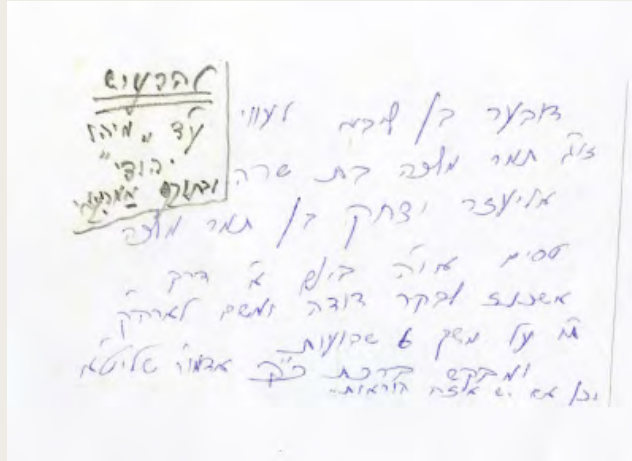 להכניס
עד "מיהו
יהודי"
דובער בן לעווי
זוג' תמר מלכה בת שרה
אליעזר יצחק בן תמר מלכה
טסים אי"ה ביום א' דרך
אשכנז לבקר דודה ומשם לארה"ק
ת"ו על משך 6 שבועות
ומבקש ברכת כ"ק אדמו"ר שליט"א
וכן אם יש איזה הוראות.